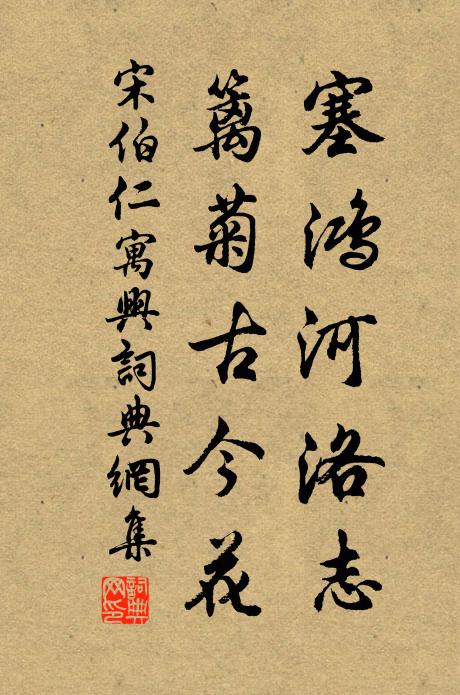 塞鴻河洛志
籬菊古今花
宋伯仁寓興詞典網集
詞典网印